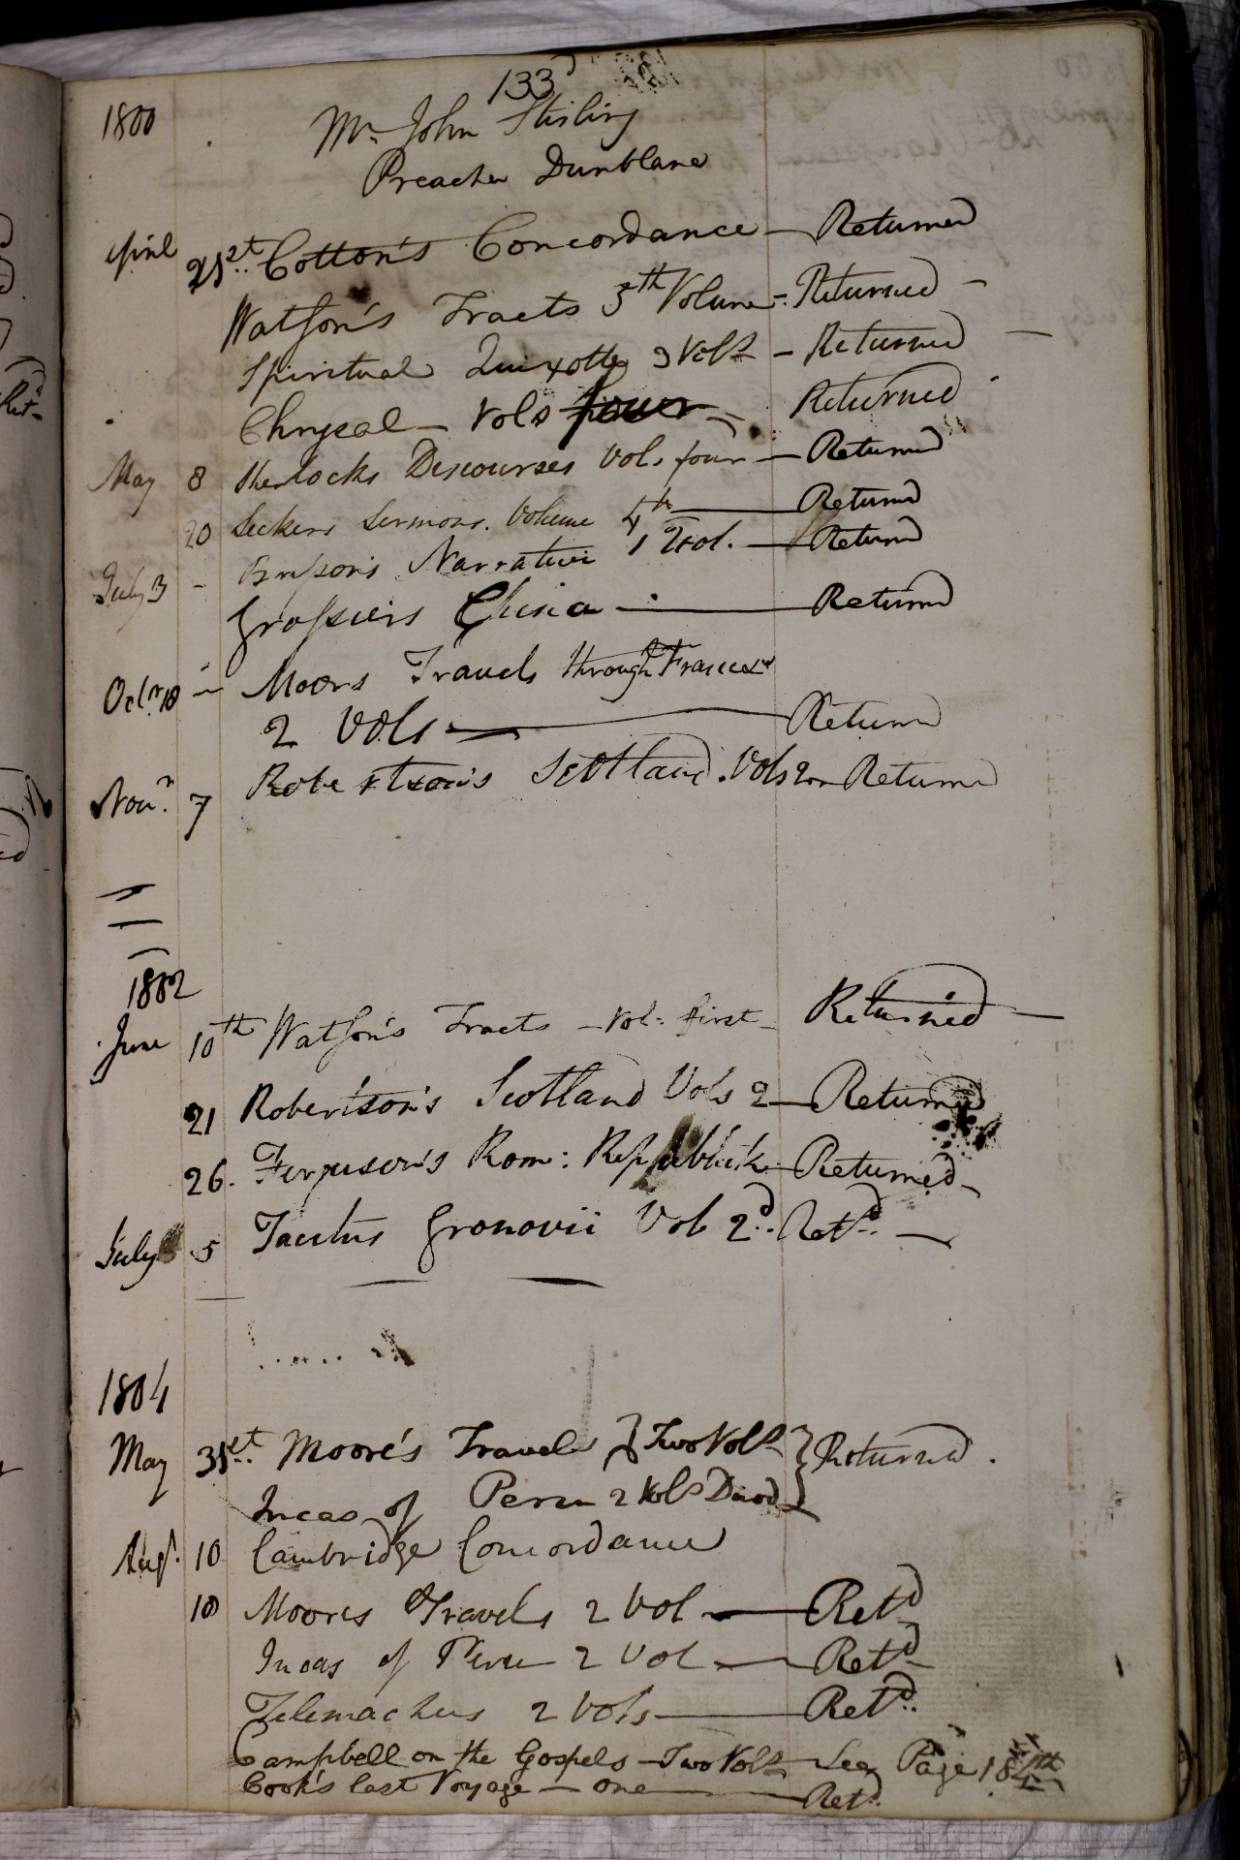 133
1800 Mr John Stirling
Preacher Dunblane
April 21st Cotton's Concordance – Returned
Watson's Tracts 5th Volume – Returned –
Spiritual Quixotte 3 Vols – Returned –
Chrysal – Vols four – Returned
May 8 Sherlocks Discourses Vols four – Returned
20 Seckers Sermons. Volume 4th – Returnd
July 3 – Narrative 1 Vol. – Returnd
Grossiers China – Returnd
Octr 18 – Moors Travels through France
2 Vols – Returnd
Novr 7 Robertson's Scotland. Vols 2 – Returnd
1802
June 10th Watson's Tracts – Vol: first – Returned –
21 Robertson's Scotland Vols 2 – Returned
26. Ferguson's Rom: Republick – Returned –
July 5 Tacitus Gronovii Vol 2d. Retd. –
1804
May 31st. Moore's Travels } Two Vols } Returned.
Incas of Peru 2 Vols Duod
Augt. 10 Cambridge Concordance
10 Moores Travels 2 Vol – Retd
Incas of Peru 2 Vol – Retd
Telemachus 2 Vols – Retd.
Campbell on the Gospels – Two Vols – See Page
Cook's last Voyage – one – Retd.